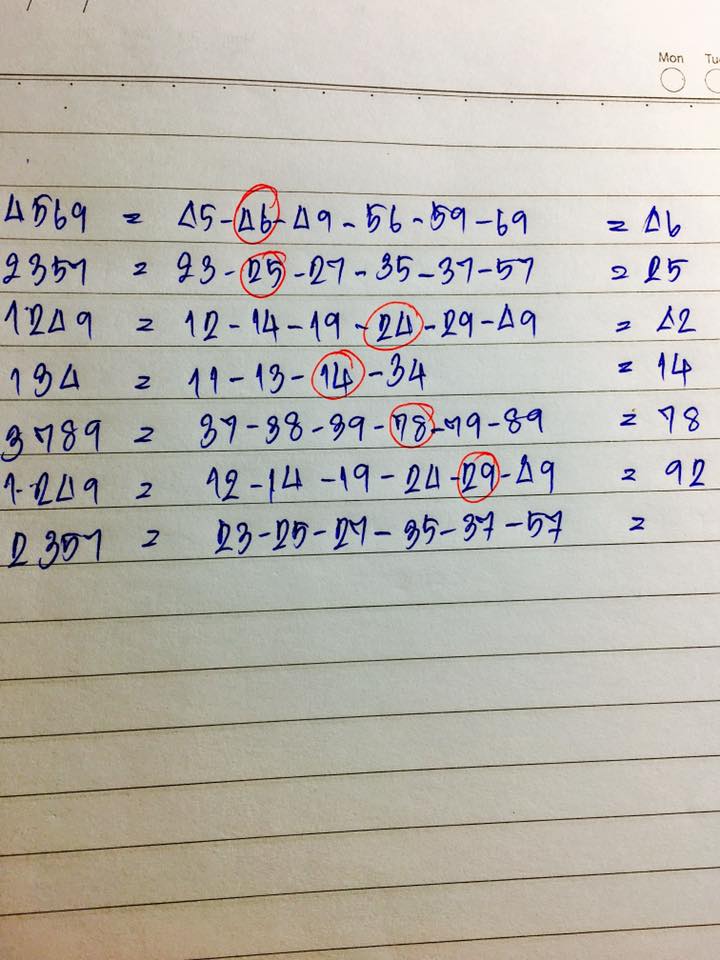 Mon Tu
4569 = 45-46-49-56-59-69 = 46
2357 = 23-25-27-35-37-57 = 25
1249 = 12-14-19-24-29-49 = 42
134 = 11-13-14-34 = 14
3789 = 37-38-39-78-79-89 = 78
1249 = 12-14-19-24-29-49 = 92
2357 = 23-25-27-35-37-57 =